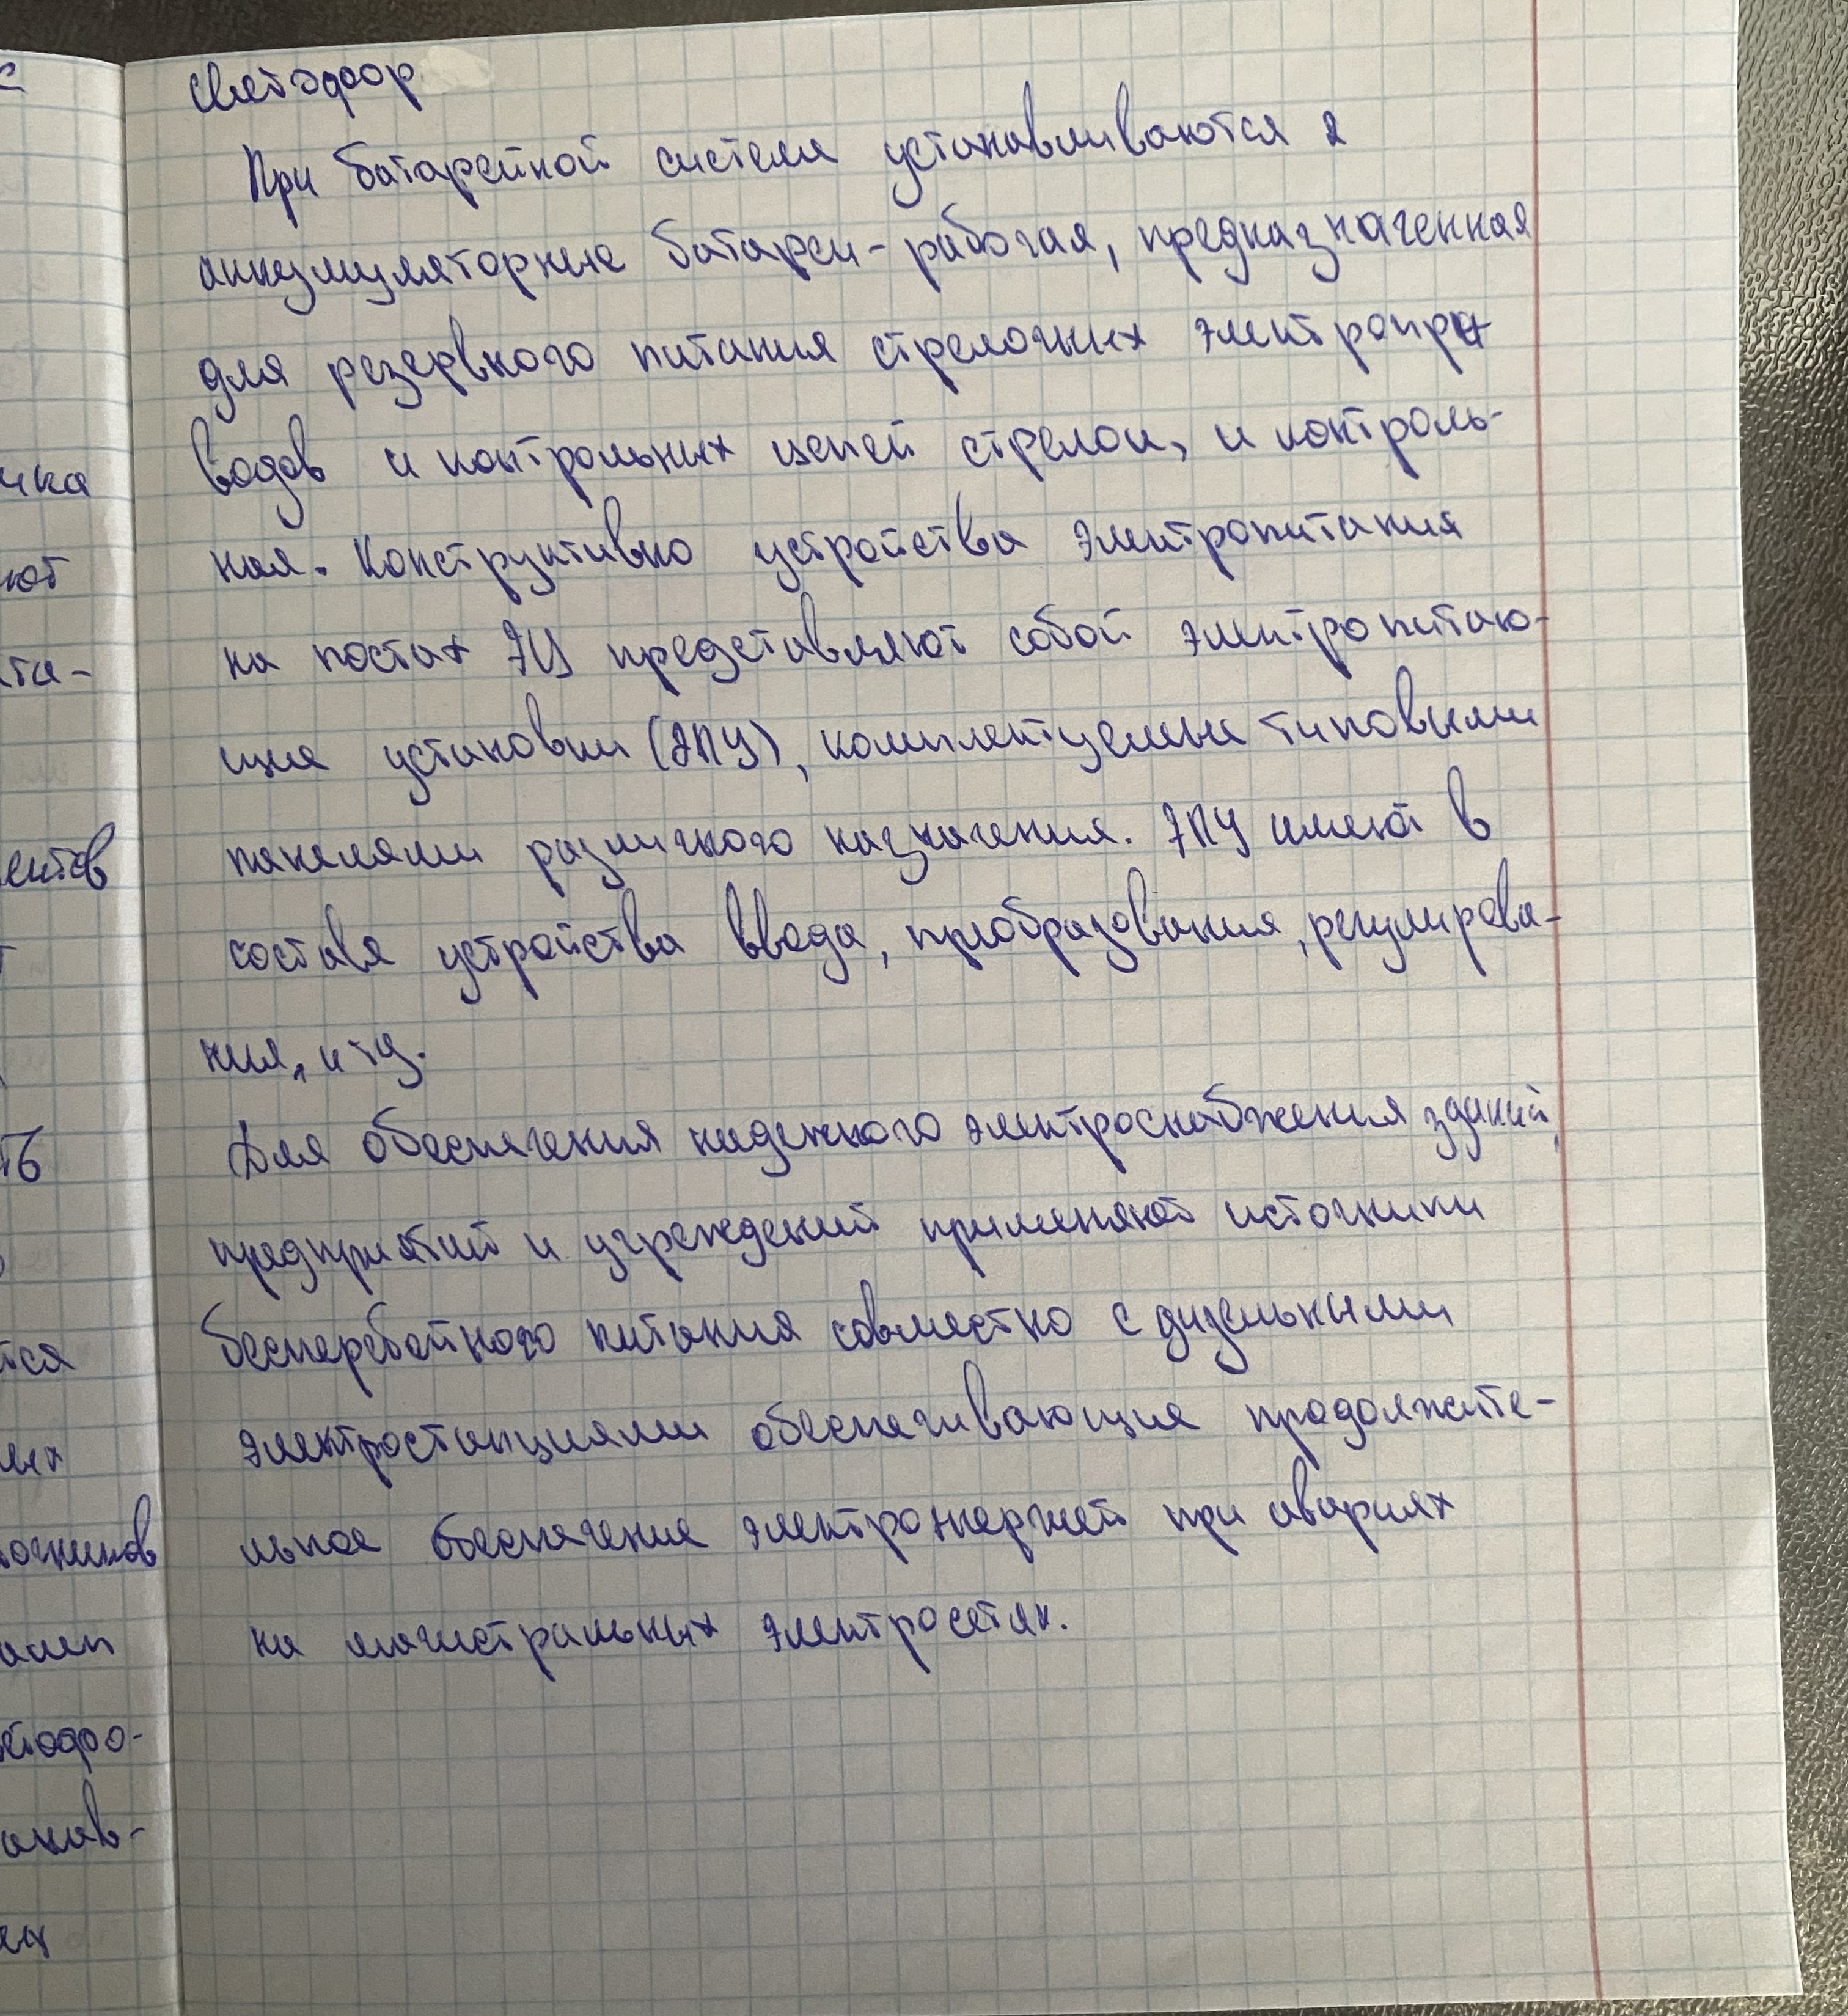 светофор
При батарейной системе устанавливаются 2
аккумуляторные батареи - рабочая, предназначенная
для резервного питания стрелочных электропри-
водов и контрольных цепей стрелок, и контроль-
ная. Конструктивно устройства электропитания
на постах ЭЦ представляют собой электропитаю-
щие установки (ЭПУ), комплектуемые типовыми
панелями различного назначения. ЭПУ имеют в
составе устройства ввода, преобразования, регулирова-
ния, и тд.
Для обеспечения надежного электроснабжения зданий,
предприятий и учреждений применяют источники
бесперебойного питания совместно с дизельными
электростанциями обеспечивающие продолжите-
льное обеспечение электроэнергией при авариях
на магистральных электросетях.
чка
ют
та-
ентов
ть
тся
ых
точников
етофо-
анав-